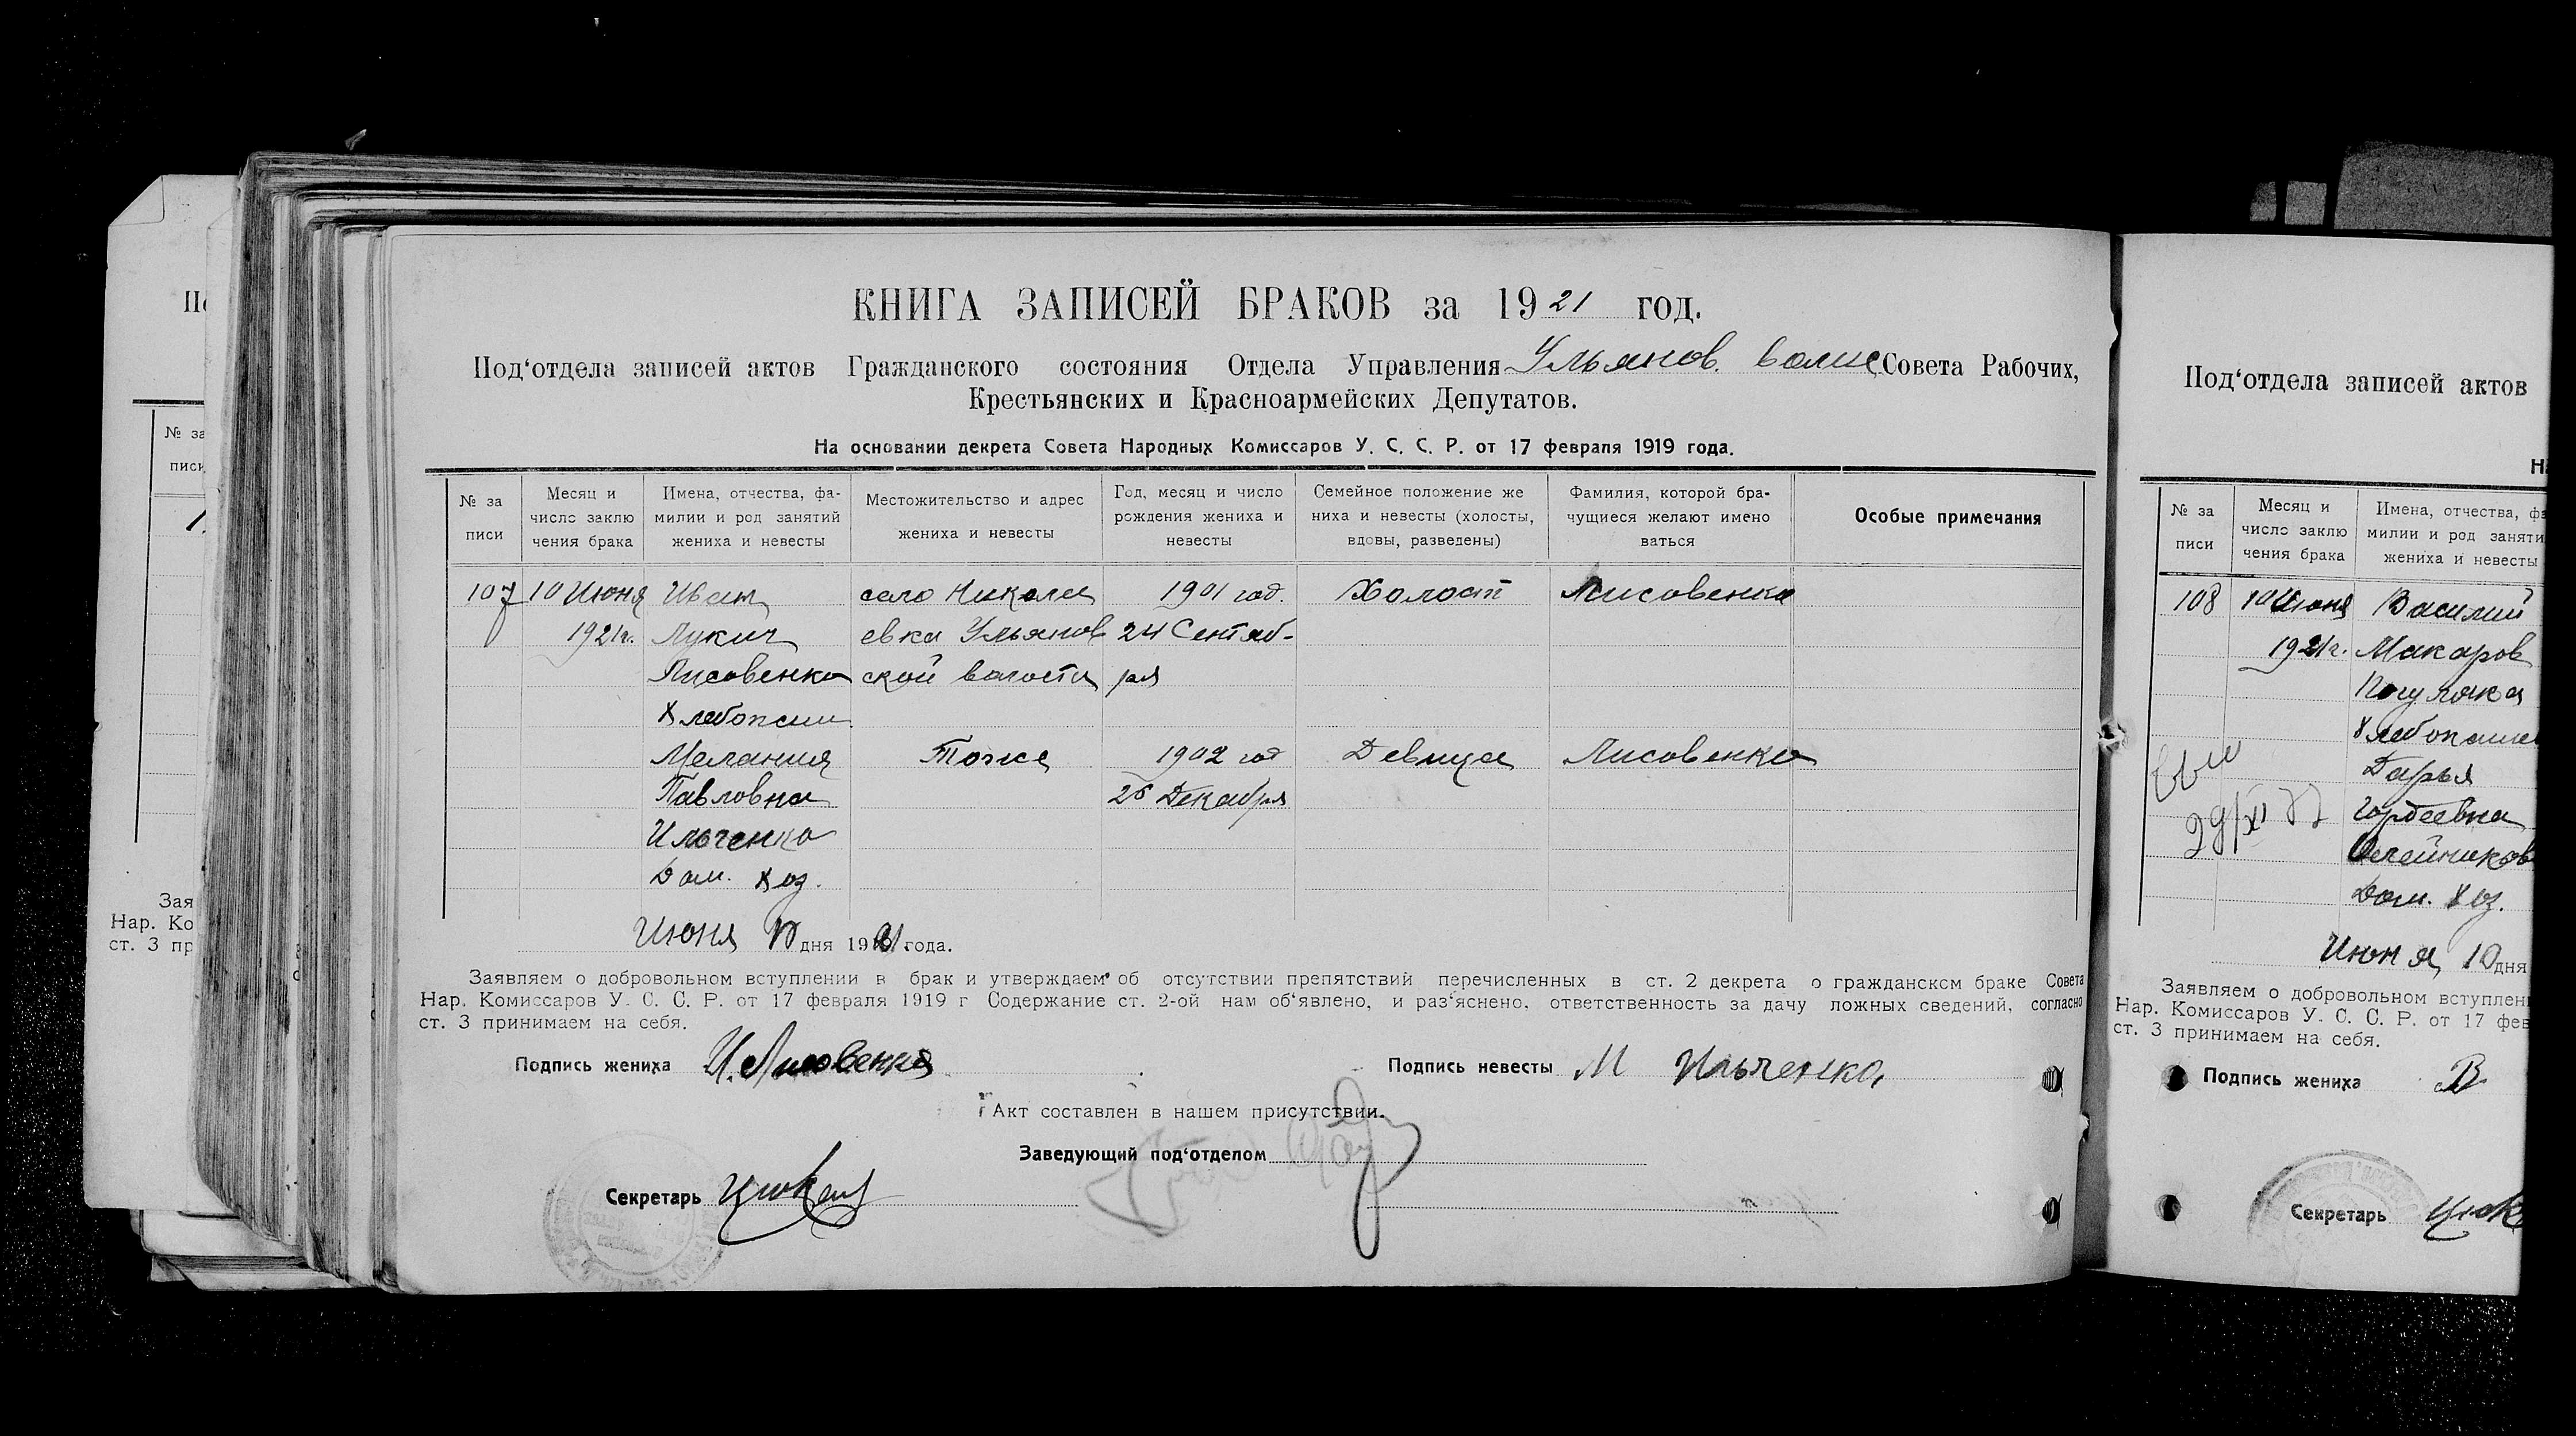 КНИГА ЗАПИСЕЙ БРАКОВ за 1921 год.
Под‘отдела записей актов Гражданского состояния Отдела Управления Ульянов. волис Совета Рабочих,
Крестьянских и Красноармейских Депутатов.
На основании декрета Совета Народных Комиссаров У. С. С. Р. от 17 февраля 1919 года.
№ за
писи
Месяц и
число заклю
чения брака
Имена, отчества, фа-
милии и род занятий
жениха и невесты
Местожительство и адрес
жениха и невесты
Год, месяц и число
рождения жениха и
невесты
Семейное положение же
ниха и невесты (холосты,
вдовы, разведены)
Фамилия, которой бра-
чущиеся желают имено
ваться
Особые примечания
107 10 Июня Иван село Никола 1901 год. Холост Лисовенко
1921г. Лукич евка Ульянов 24 Сентяб-
Лисовенко ской волости ря
Хлебопаш.
Мелания Тоже 1902 год Девица Лисовенко
Павловна 26 Декабря
Ильченко
Дом. хоз.
Июня 10 дня 1921 года.
Заявляем о добровольном вступлении в брак и утверждаем об отсутствии препятствий перечисленных в ст. 2 декрета о гражданском браке Совета
Нар. Комиссаров У. С. С. Р. от 17 февраля 1919 г Содержание ст. 2-ой нам об‘явлено, и раз‘яснено, ответственность за дачу ложных сведений, согласно
ст. 3 принимаем на себя.
Подпись жениха И. Лисовенко
Подпись невесты М Ильченко
Акт составлен в нашем присутствии.
Заведующий под‘отделом
Секретарь
№ за
писи
Зая
Нар. Ко
ст. 3 пр
Под‘отдела записей актов
№ за
писи
Месяц и
число заклю
чения брака
Имена, отчества, фа
милии и род заняти
жениха и невесты
108 10 Июня Василий
1921г. Макаров
Хлебопаше
Дарья
Гордеевна
Олейников
Дом. хоз.
29/XI
Июня 10 дня
Заявляем о добровольном вступлен
Нар. Комиссаров У. С. С. Р. от 17 фев
ст. 3 принимаем на себя.
Подпись жениха В
Секретарь